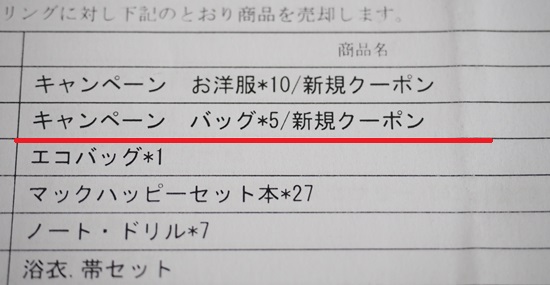 リングに対し下記のとおり商品を売却します。
商品名
キャンペーン　お洋服*10/新規クーポン
キャンペーン　バッグ*5/新規クーポン
エコバッグ*1
マックハッピーセット本*27
ノート・ドリル*7
浴衣.帯セット